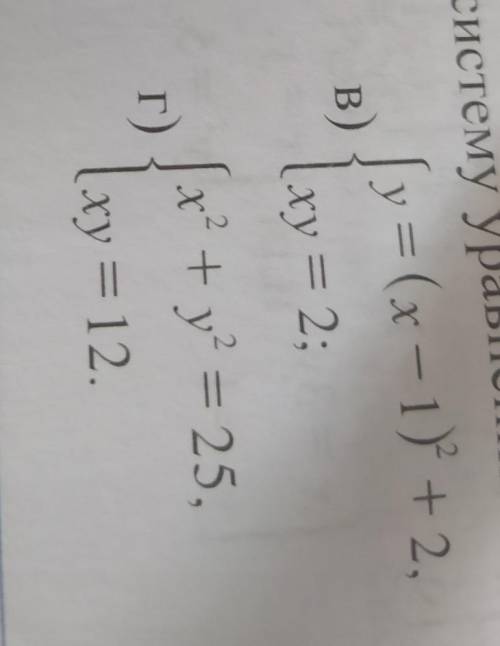 систему
в) { y = (x − 1)² + 2,
xy = 2;
г) { x² + y² = 25,
xy = 12.